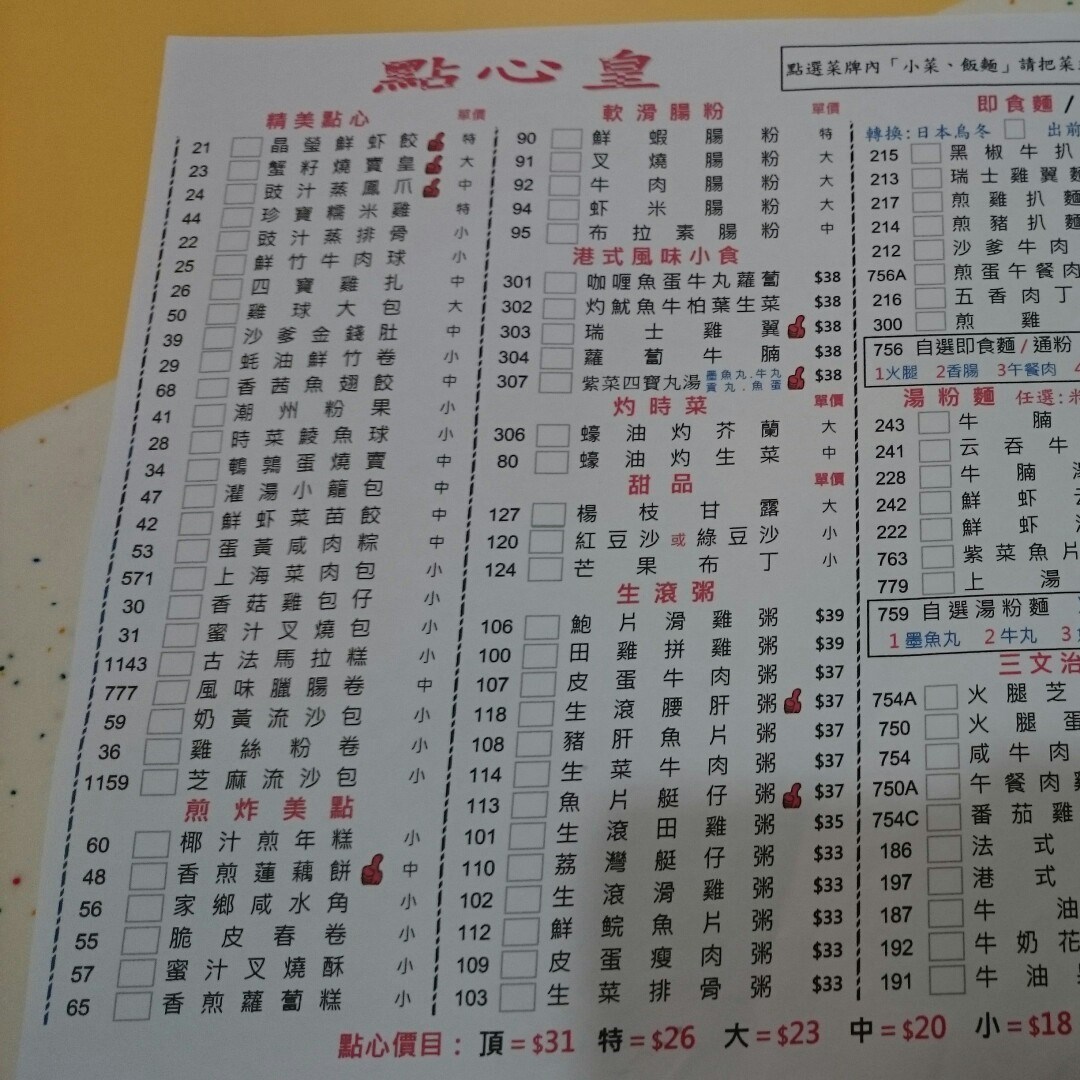 點心皇
點選菜牌內「小菜、飯麵」請把菜
精美點心 單價
21 晶瑩鮮虾餃 特
23 蟹籽燒賣皇 大
24 豉汁蒸鳳爪 中
44 珍寶糯米雞 特
22 豉汁蒸排骨 小
25 鮮竹牛肉球 小
26 四寶雞扎 中
50 雞球大包 大
39 沙爹金錢肚 中
29 蚝油鮮竹卷 小
68 香茜魚翅餃 中
41 潮州粉果 小
28 時菜鯪魚球 小
34 鵪鶉蛋燒賣 中
47 灌湯小籠包 中
42 鮮虾菜苗餃 中
53 蛋黃咸肉粽 中
571 上海菜肉包 小
30 香菇雞包仔 小
31 蜜汁叉燒包 小
1143 古法馬拉糕 小
777 風味臘腸卷 中
59 奶黃流沙包 小
36 雞絲粉卷 小
1159 芝麻流沙包 小
煎炸美點
60 椰汁煎年糕 小
48 香煎蓮藕餅 中
56 家鄉咸水角 小
55 脆皮春卷 小
57 蜜汁叉燒酥 小
65 香煎蘿蔔糕 小
軟滑腸粉 單價
90 鮮蝦腸粉 特
91 叉燒腸粉 大
92 牛肉腸粉 大
94 虾米腸粉 大
95 布拉素腸粉 中
港式風味小食
301 咖喱魚蛋牛丸蘿蔔 $38
302 灼魷魚牛柏葉生菜 $38
303 瑞士雞翼 $38
304 蘿蔔牛腩 $38
307 紫菜四寶丸湯 墨魚丸.牛丸 貢丸.魚蛋 $38
灼時菜 單價
306 蠔油灼芥蘭 大
80 蠔油灼生菜 中
甜品 單價
127 楊枝甘露 大
120 紅豆沙或綠豆沙 小
124 芒果布丁 小
生滾粥
106 鮑片滑雞粥 $39
100 田雞拼雞粥 $39
107 皮蛋牛肉粥 $37
118 生滾腰肝粥 $37
108 豬肝魚片粥 $37
114 生菜牛肉粥 $37
113 魚片艇仔粥 $37
101 生滾田雞粥 $35
110 荔灣艇仔粥 $33
102 生滾滑雞粥 $33
112 鮮鯇魚片粥 $33
109 皮蛋瘦肉粥 $33
103 生菜排骨粥 $33
即食麵 /
轉換:日本烏冬 出前
215 黑椒牛扒
213 瑞士雞翼麵
217 煎雞扒麵
214 煎豬扒麵
212 沙爹牛肉
756A 煎蛋午餐肉
216 五香肉丁
300 煎雞
756 自選即食麵/通粉
1火腿 2香腸 3午餐肉 4
湯粉麵 任選:米
243 牛腩
241 云吞牛
228 牛腩
242 鮮虾云
222 鮮虾
763 紫菜魚片
779 上湯
759 自選湯粉麵
1墨魚丸 2牛丸 3
三文治
754A 火腿芝
750 火腿蛋
754 咸牛肉
750A 午餐肉雞
754C 番茄雞
186 法式
197 港式
187 牛油
192 牛奶花
191 牛油
點心價目：頂=$31 特=$26 大=$23 中=$20 小=$18